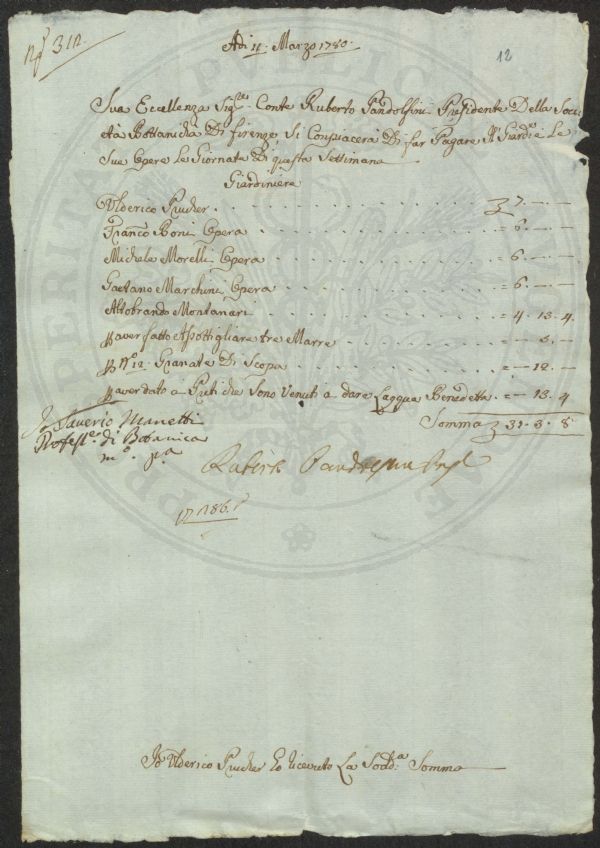 N.º 312
12
Adi 11. Marzo 1780.
Sua Eccellenza Sig.re Conte Ruberto Pandolfini Presidente Della Soci-
età Bottanicha Di firenze Si Conpiacerà Di far Pagare Al Giard.e e Le
Sue Opere le Giornate Di questa Settimana
Giardiniere
Ulderico Prucher . . . 7. — —
Franco Boni Opera . . = 6. — —
Michele Morelli Opera . . = 6. — —
Gaetano Marchini Opera . . = 6. — —
Aldobrando Montanari . . = 4. 13. 4
p aver fatto Apottigliare tre Marre . . = — 6. —
p N.º 12. Granate Di Scopa . . = — 12. —
p aver dato a Preti che Sono Venuti a dare Lacqua Benedetta. = — 13. 4
Somma 31. 3. 8
Io Saverio Manetti
Profess.e di Botanica
m.o p.a
Ruberto Pandolfini Pres.
Io Ulderico Prucher ho riceuto La Sodd.a Somma
PRO PUBLICA